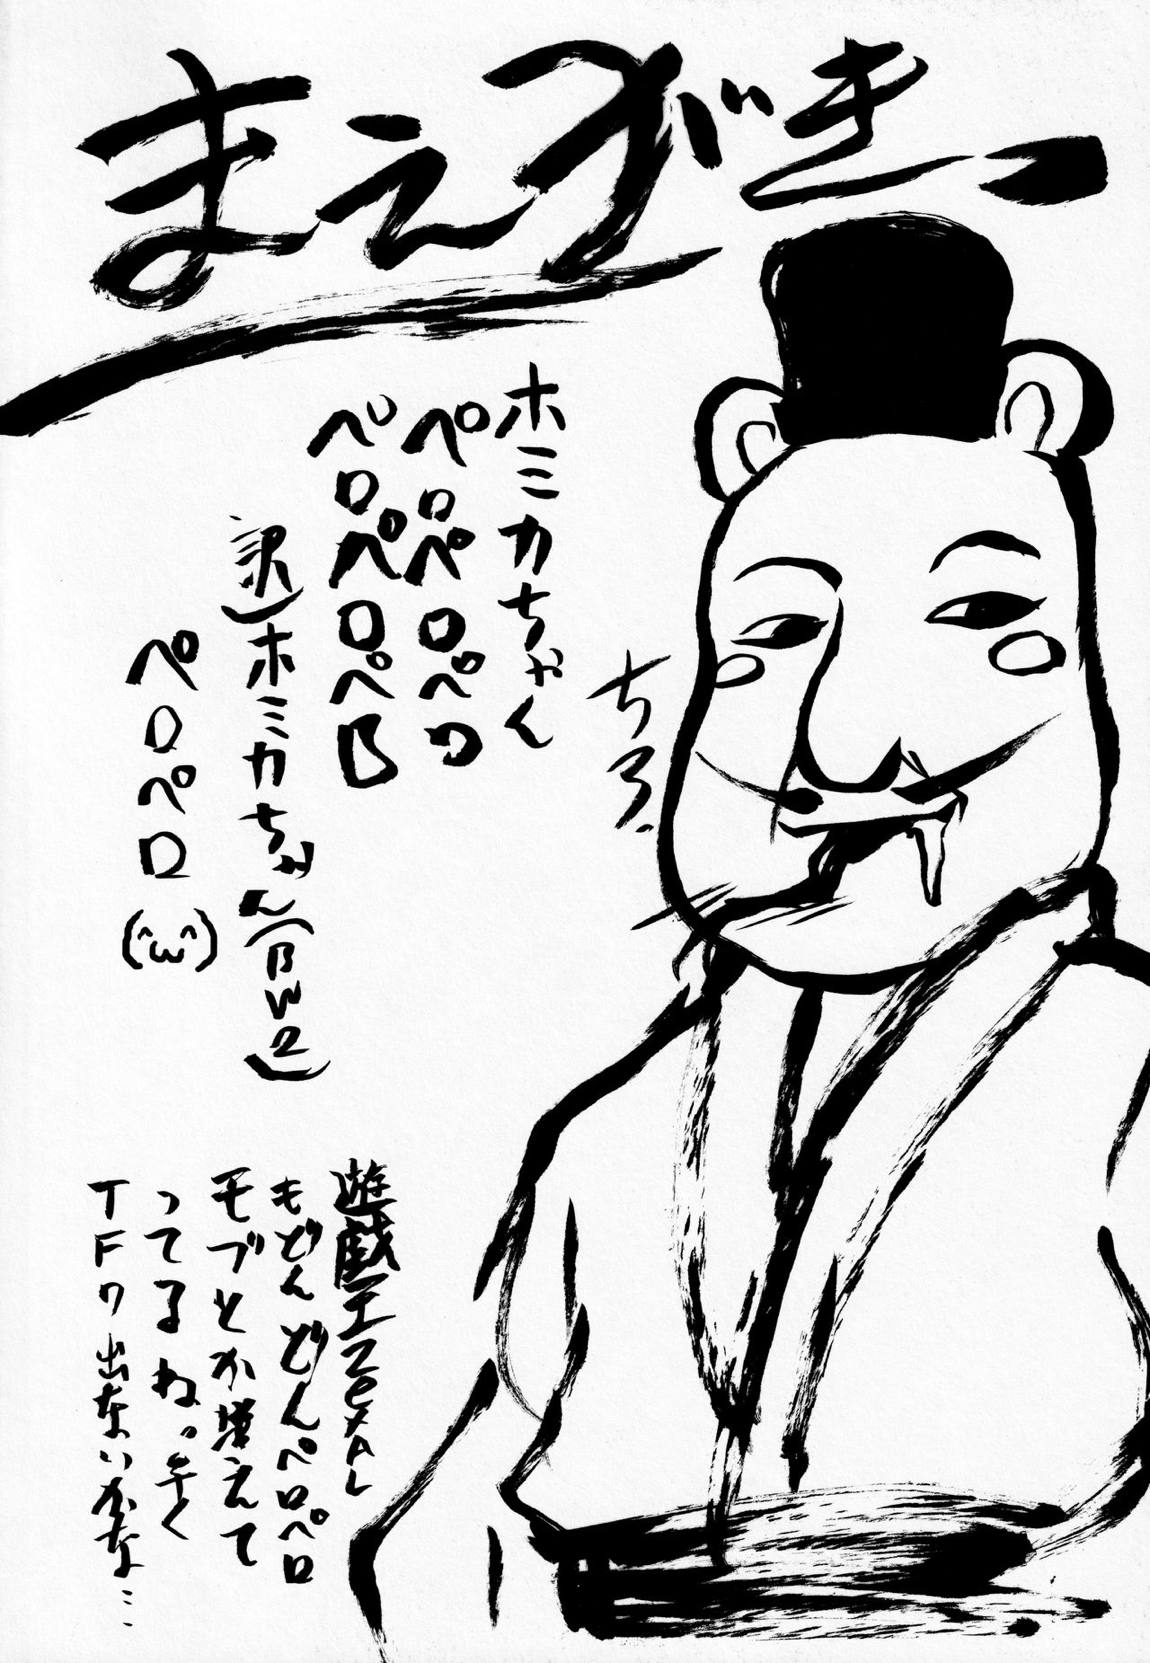 まえがきっ
ホミカちゃん
ペロペロペロ
ペロペロペロ
訳)ホミカちゃん(BW2)
ペロペロ(^ω^)
ちろ
遊戯王ZeXAL
もどんどんペロペロ
モブとか増えて
ってるねっ早く
TF7出ないかな…